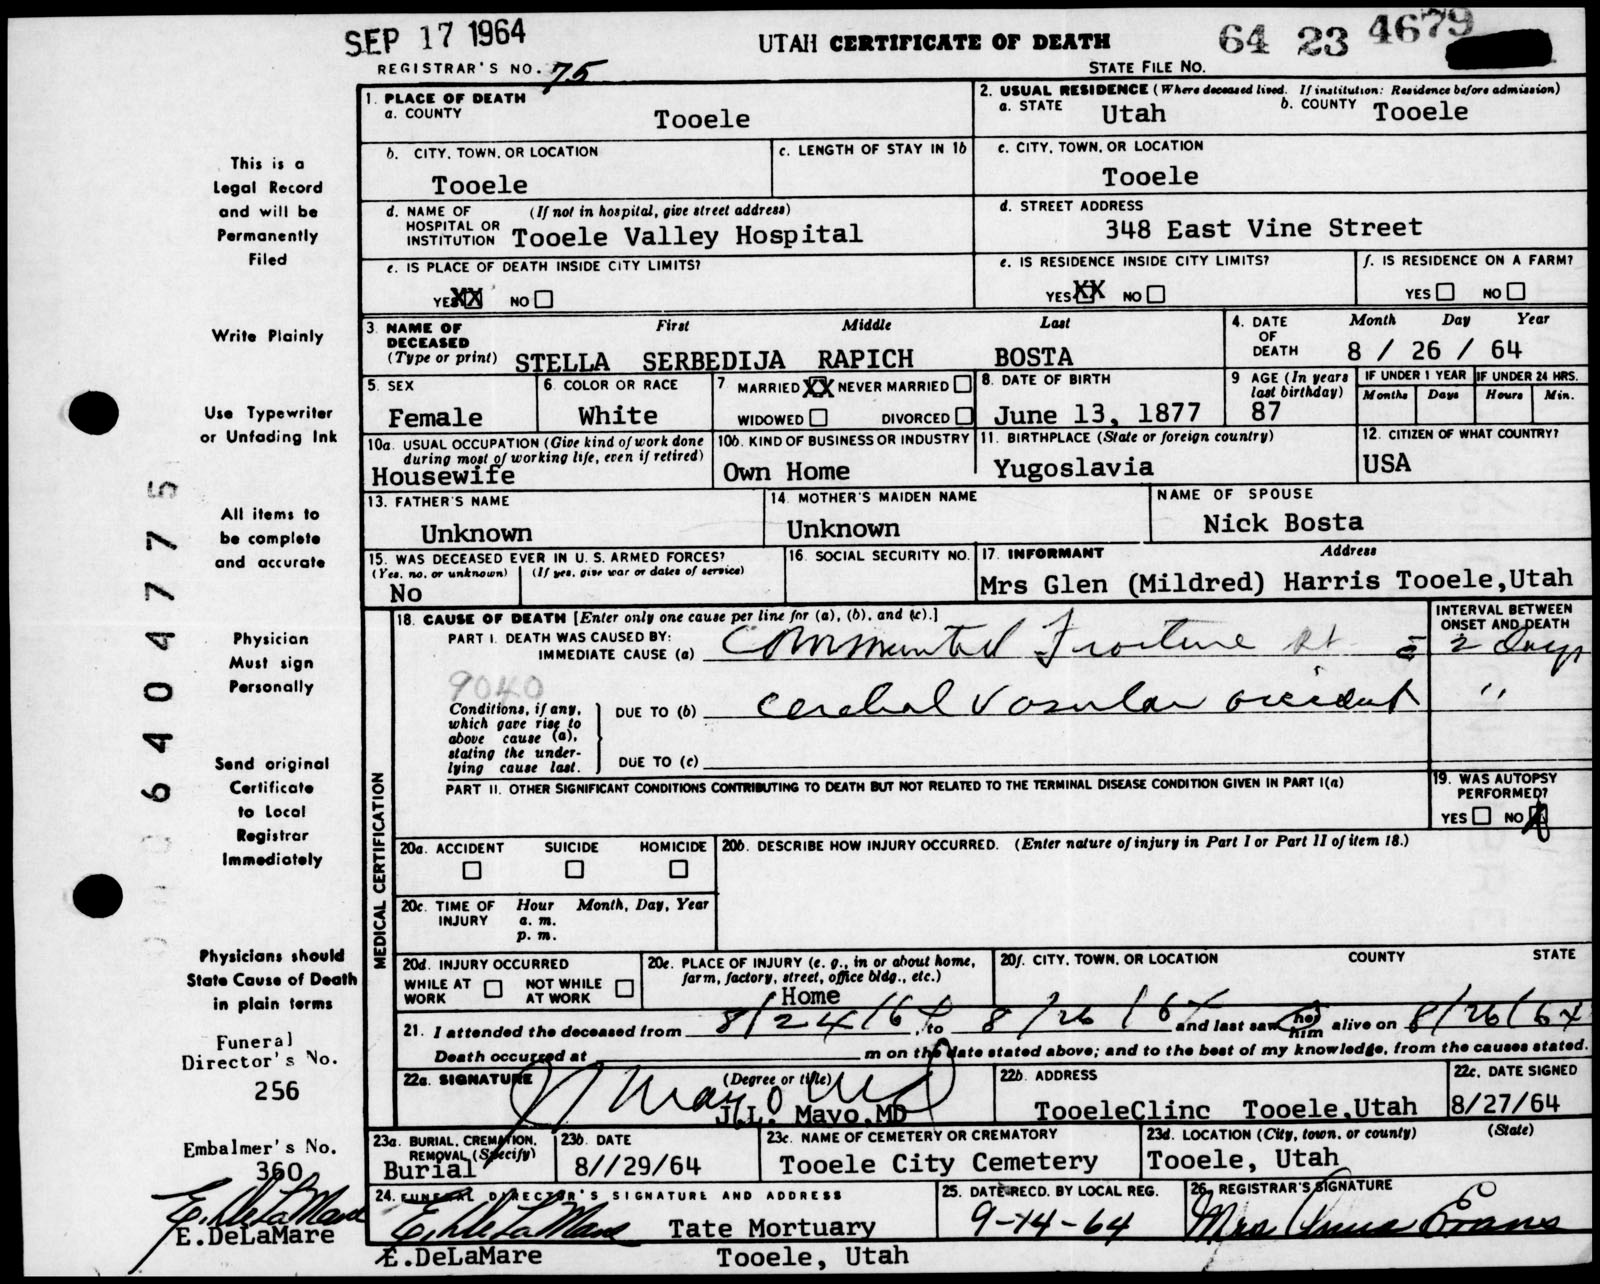 SEP 17 1964
UTAH CERTIFICATE OF DEATH
64 23 4679
REGISTRAR'S NO. 75
STATE FILE NO.
1. PLACE OF DEATH
a. COUNTY
Tooele
2. USUAL RESIDENCE (Where deceased lived. If institution: Residence before admission)
a. STATE Utah b. COUNTY Tooele
b. CITY, TOWN, OR LOCATION
Tooele
c. LENGTH OF STAY IN 1b
c. CITY, TOWN, OR LOCATION
Tooele
d. NAME OF HOSPITAL OR INSTITUTION
(If not in hospital, give street address)
Tooele Valley Hospital
d. STREET ADDRESS
348 East Vine Street
e. IS PLACE OF DEATH INSIDE CITY LIMITS?
YES XX NO
e. IS RESIDENCE INSIDE CITY LIMITS?
YES XX NO
f. IS RESIDENCE ON A FARM?
YES NO
3. NAME OF DECEASED
(Type or print)
First Middle Last
STELLA SERBEDIJA RAPICH BOSTA
4. DATE OF DEATH
Month Day Year
8 / 26 / 64
5. SEX
Female
6. COLOR OR RACE
White
7 MARRIED XX NEVER MARRIED
WIDOWED DIVORCED
8. DATE OF BIRTH
June 13, 1877
9 AGE (In years last birthday)
87
IF UNDER 1 YEAR
Months Days
IF UNDER 24 HRS.
Hours Min.
10a. USUAL OCCUPATION (Give kind of work done during most of working life, even if retired)
Housewife
10b. KIND OF BUSINESS OR INDUSTRY
Own Home
11. BIRTHPLACE (State or foreign country)
Yugoslavia
12. CITIZEN OF WHAT COUNTRY?
USA
13. FATHER'S NAME
Unknown
14. MOTHER'S MAIDEN NAME
Unknown
NAME OF SPOUSE
Nick Bosta
15. WAS DECEASED EVER IN U. S. ARMED FORCES?
(Yes, no, or unknown) (If yes, give war or dates of service)
No
16. SOCIAL SECURITY NO.
17. INFORMANT Address
Mrs Glen (Mildred) Harris Tooele,Utah
MEDICAL CERTIFICATION
18. CAUSE OF DEATH [Enter only one cause per line for (a), (b), and (c).]
PART I. DEATH WAS CAUSED BY:
IMMEDIATE CAUSE (a) Comminuted Fracture
INTERVAL BETWEEN ONSET AND DEATH
2 Days
9040
Conditions, if any, which gave rise to above cause (a), stating the underlying cause last.
DUE TO (b) cerebral vascular accident "
DUE TO (c)
PART II. OTHER SIGNIFICANT CONDITIONS CONTRIBUTING TO DEATH BUT NOT RELATED TO THE TERMINAL DISEASE CONDITION GIVEN IN PART I(a)
19. WAS AUTOPSY PERFORMED?
YES NO
20a. ACCIDENT SUICIDE HOMICIDE
20b. DESCRIBE HOW INJURY OCCURRED. (Enter nature of injury in Part I or Part II of item 18.)
20c. TIME OF INJURY
Hour Month, Day, Year
a. m.
p. m.
20d. INJURY OCCURRED
WHILE AT WORK NOT WHILE AT WORK
20e. PLACE OF INJURY (e. g., in or about home, farm, factory, street, office bldg., etc.)
Home
20f. CITY, TOWN, OR LOCATION COUNTY STATE
21. I attended the deceased from 8/24/64, to 8/26/64 and last saw her him alive on 8/26/64
Death occurred at m on the date stated above; and to the best of my knowledge, from the causes stated.
22a. SIGNATURE (Degree or title)
J L Mayo MD
J.L. Mayo,MD
22b. ADDRESS
TooeleClinc Tooele,Utah
22c. DATE SIGNED
8/27/64
23a. BURIAL, CREMATION, REMOVAL (Specify)
Burial
23b. DATE
8//29/64
23c. NAME OF CEMETERY OR CREMATORY
Tooele City Cemetery
23d. LOCATION (City, town, or county) (State)
Tooele, Utah
24. FUNERAL DIRECTOR'S SIGNATURE AND ADDRESS
E. DeLaMare Tate Mortuary
E.DeLaMare Tooele, Utah
25. DATE RECD. BY LOCAL REG.
9-14-64
26. REGISTRAR'S SIGNATURE
Mrs Anna Evans
This is a
Legal Record
and will be
Permanently
Filed
Write Plainly
Use Typewriter
or Unfading Ink
All items to
be complete
and accurate
Physician
Must sign
Personally
Send original
Certificate
to Local
Registrar
Immediately
Physicians should
State Cause of Death
in plain terms
Funeral
Director's No.
256
Embalmer's No.
360
E. DeLaMare
E.DeLaMare
6404775